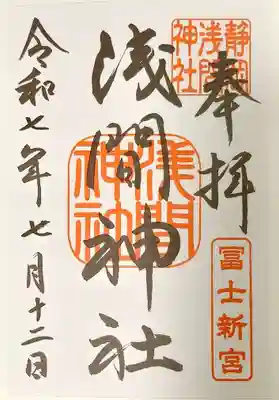 奉拝
静岡
浅間
神社
冨士新宮
浅間神社
浅間
神社
令和七年七月十二日